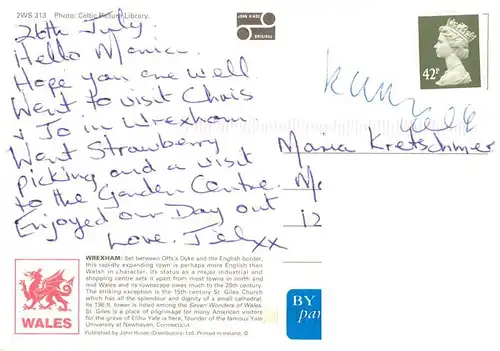 2WS 313 Photo: Celtic Picture Library.
JOHN HINDE
ORIGINAL
26th July.
Hello Maria.
Hope you are well.
Went to visit Chris
& Jo in Wrexham
Went Strawberry
picking and a visit
to the Garden Centre.
Enjoyed our Day out
Love. Jelxx
42P
Maria Kretschmer
12
WREXHAM: Set between Offa's Dyke and the English border,
this rapidly expanding town is perhaps more English than
Welsh in character. Its status as a major industrial and
shopping centre sets it apart from most towns in north and
mid Wales and its townscape owes much to the 20th century.
The striking exception is the 15th century St. Giles Church
which has all the splendour and dignity of a small cathedral.
Its 136 ft. tower is listed among the Seven Wonders of Wales.
St. Giles is a place of pilgrimage for many American visitors
for the grave of Elihu Yale is here, founder of the famous Yale
University at Newhaven, Connecticut.
Published by John Hinde (Distributors) Ltd. Printed in Ireland. ©
WALES
BY
par